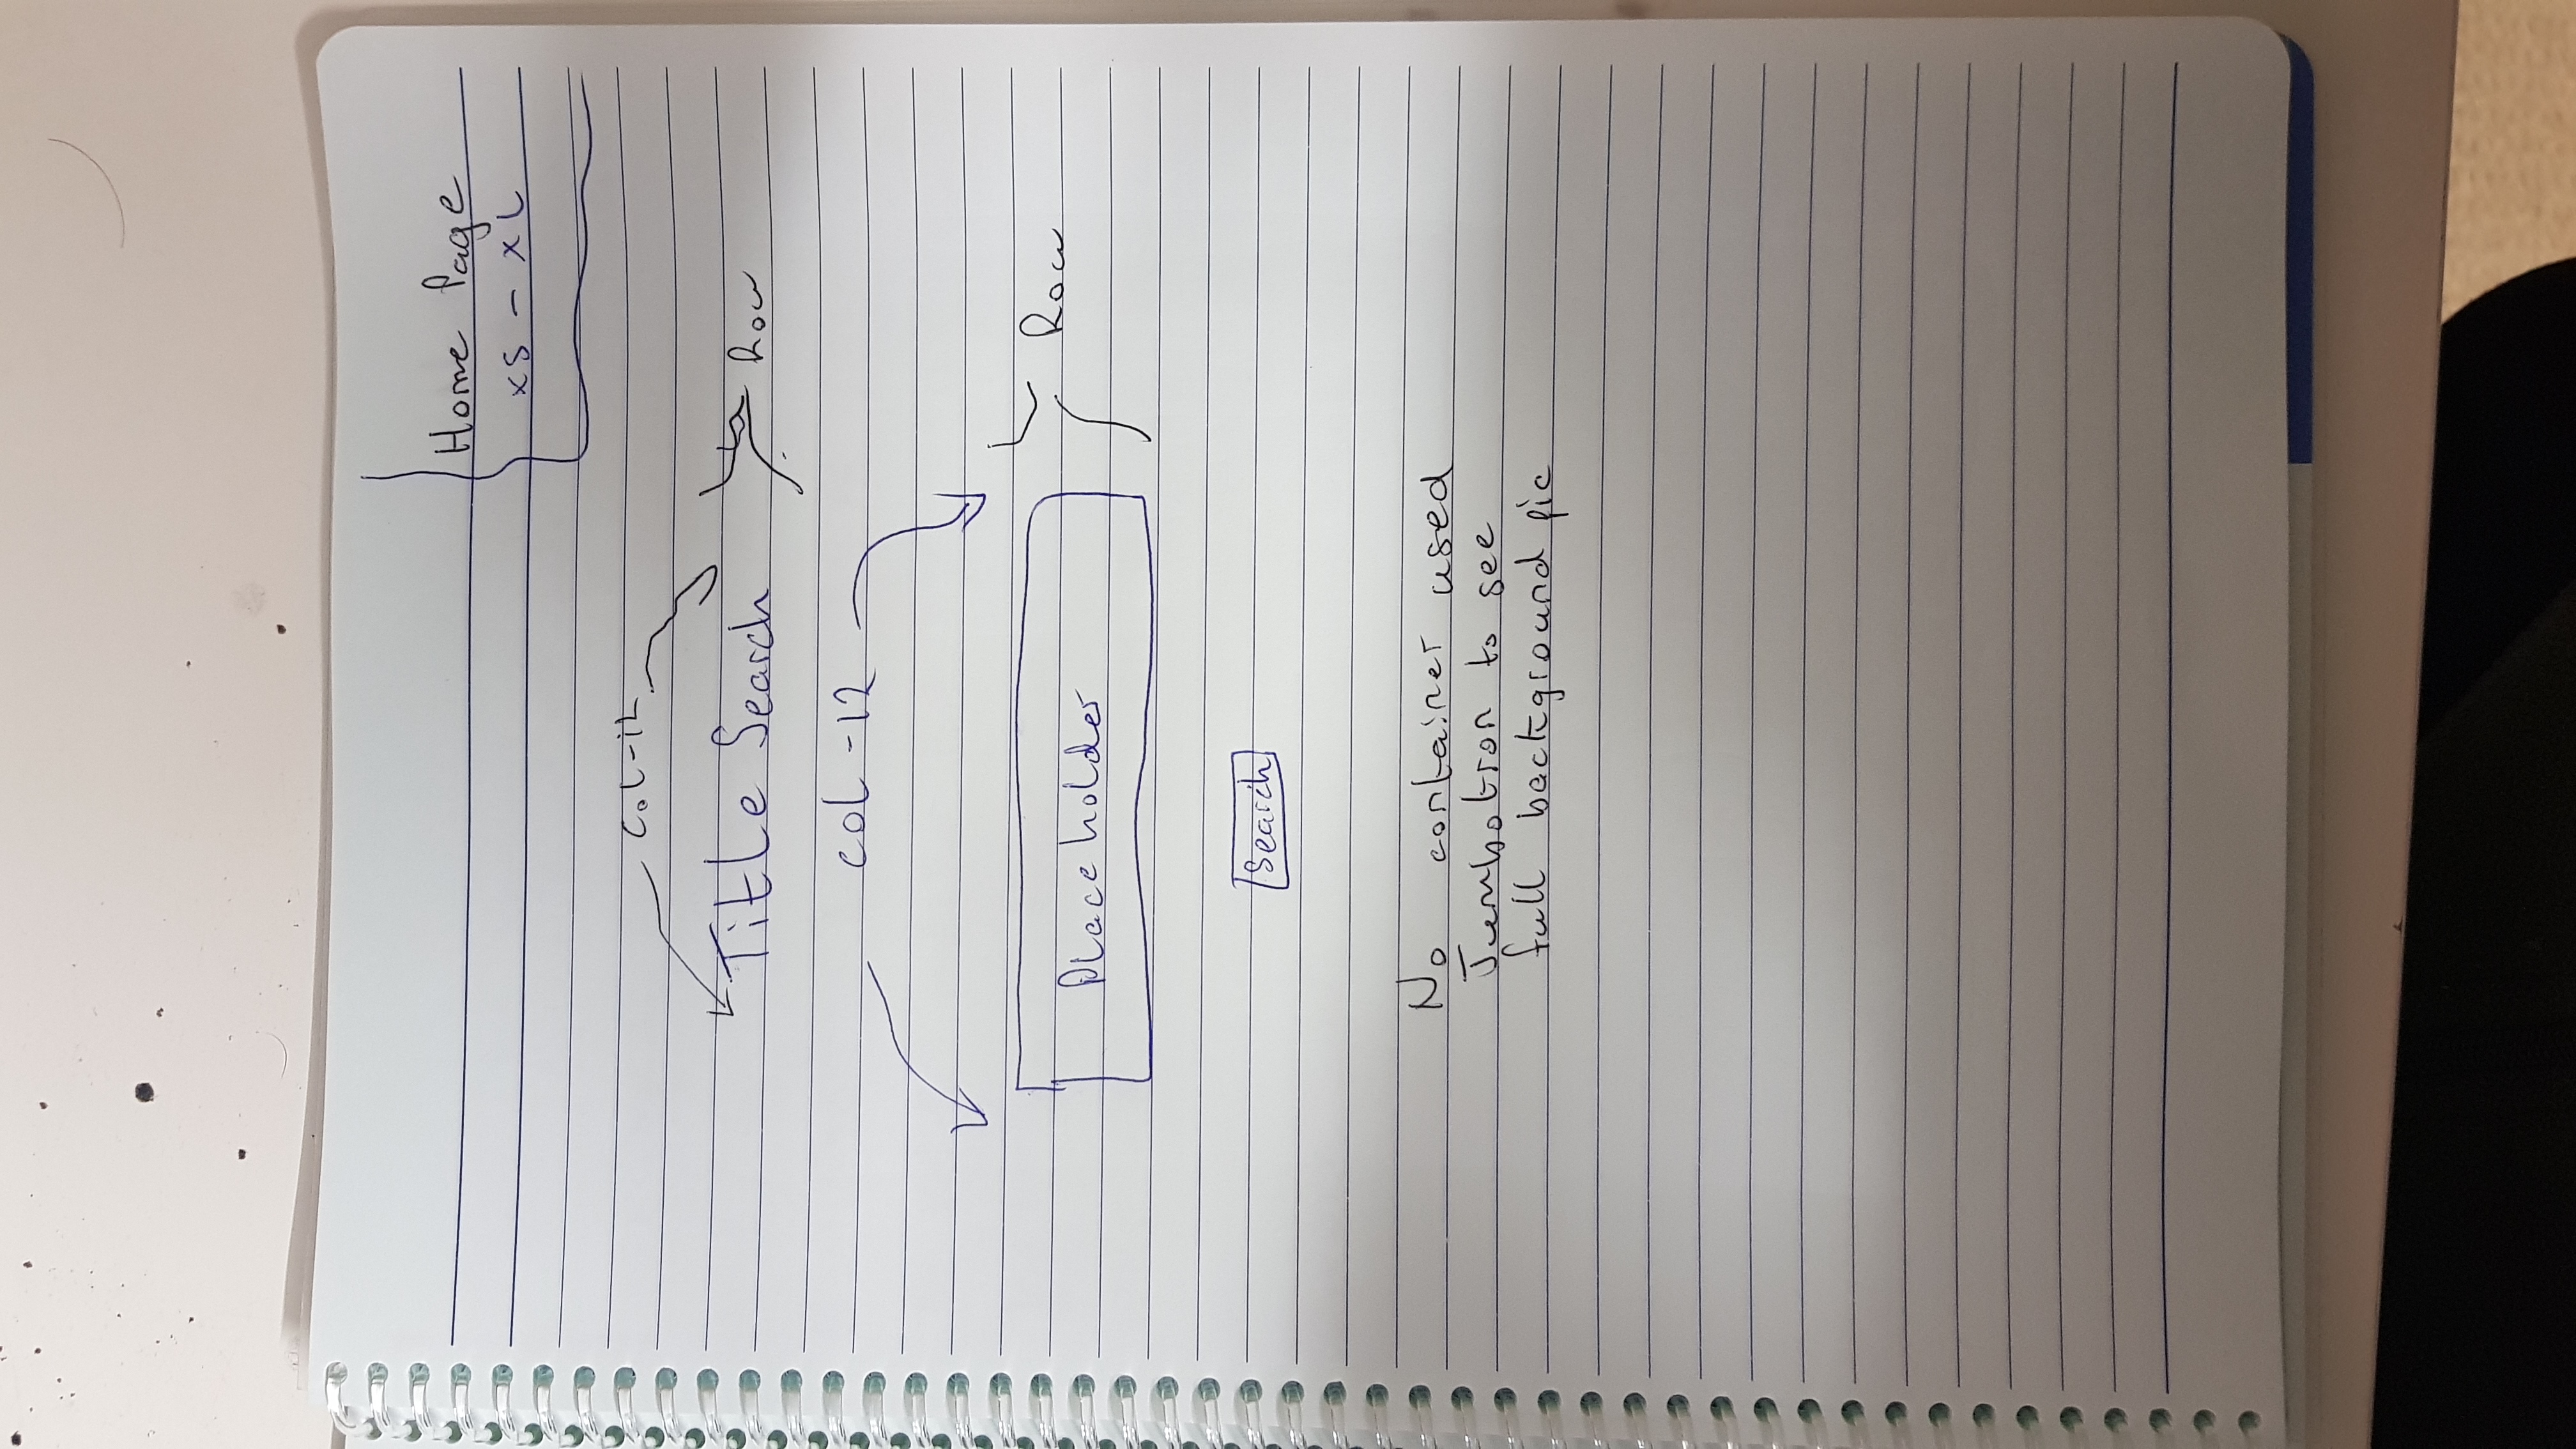 Home Page
xs - xL
CoL-12
Title Search
Row
coL -12
Placeholder
Row
Search
No container used
Jumbotron to see
full background pic